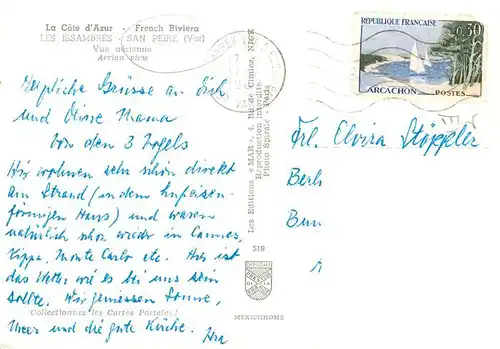 La Côte d'Azur - French Riviera
LES ISSAMBRES - SAN PEIRE (Var)
Vue aérienne
Aerian view
Herzliche Grüsse an Dich
und Deine Mama
von den 3 Vogels
Wir wohnen sehr schön direkt
am Strand (in dem hufeisen-
förmigen Haus) und waren
natürlich schon wieder in Cannes,
Nizza, Monte Carlo etc. Hier ist
das Wetter wie es bei uns sein
sollte. Wir geniessen Sonne,
Meer und die gute Küche.
Collectionnez les Cartes Postales!
Les Editions « MAR », 4, Bd de Cimiez, NICE
Reproduction interdite
Photo Spirale - Paris
519
MEXICHROME
REPUBLIQUE FRANÇAISE
0,30
ARCACHON POSTES
Frl. Elvira Stöppler
Berli
Bun